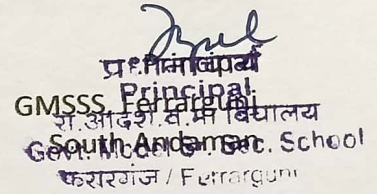 प्रधानाचार्य
Principal
GMSSS, Ferrargunj
रा.आदर्श.व.मा विद्यालय
South Andaman
Govt. Model S. Sec. School
फरारगंज / Ferrargunj